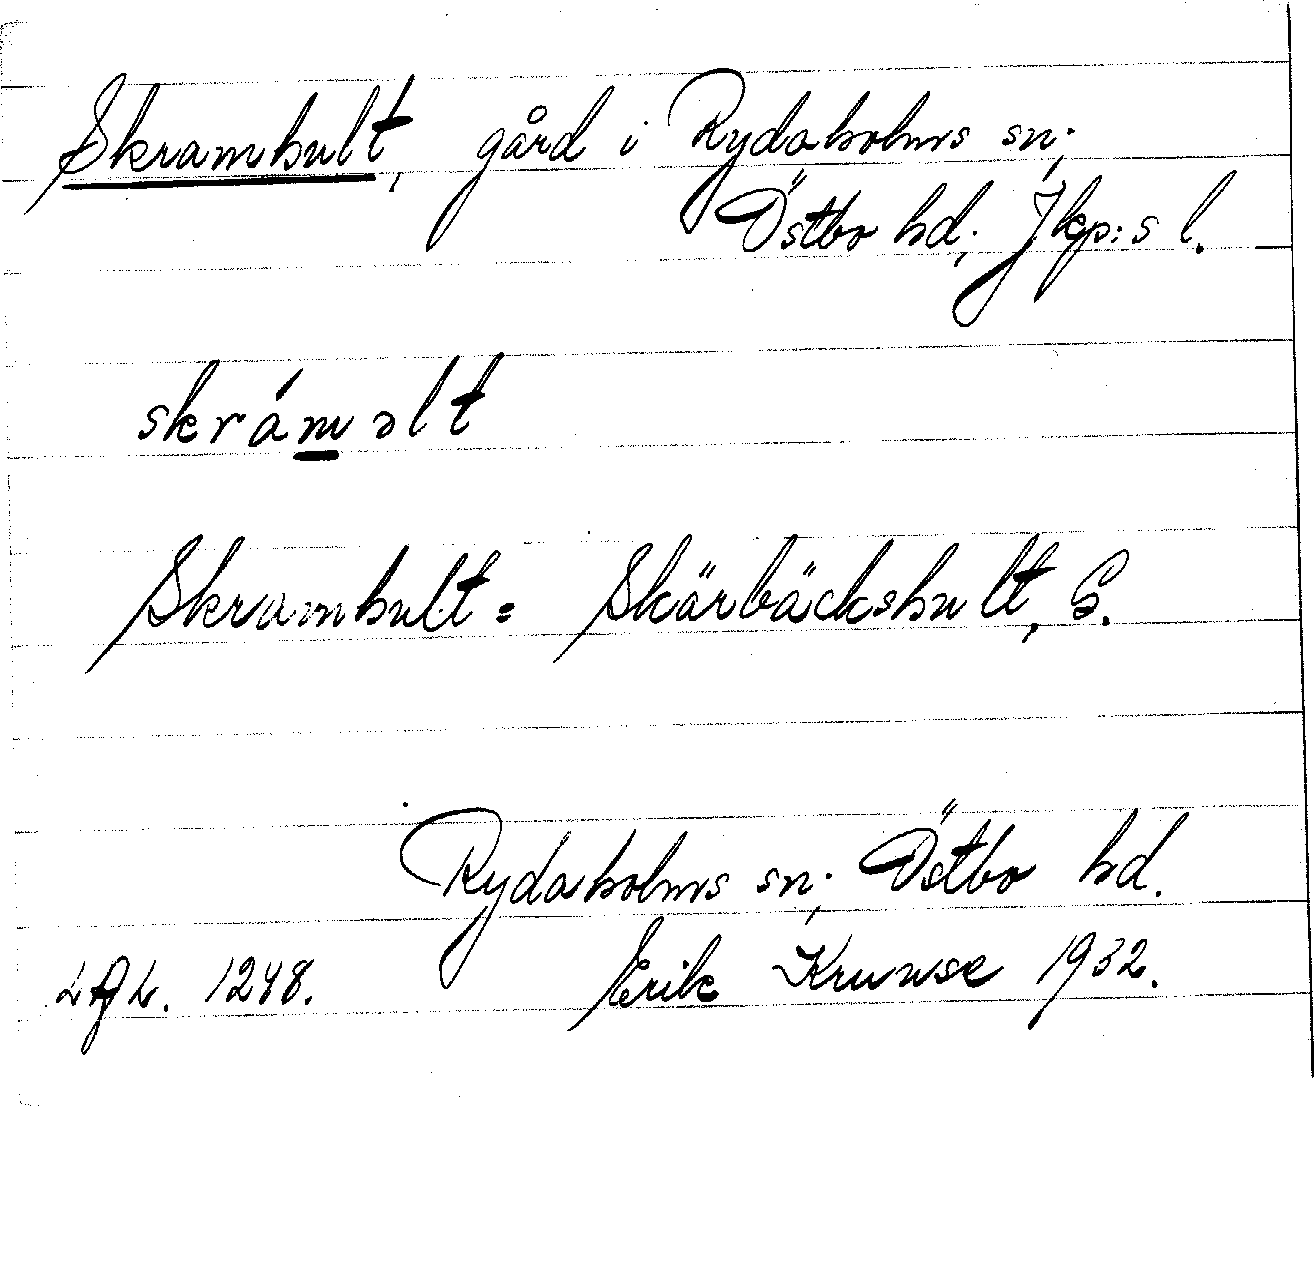 Skramhult, gård i Rydaholms sn;
Östbo hd; Jkp:s l.
skráməlt
Skramhult = Skärbäckshult, G.
Rydaholms sn; Östbo hd.
LAL. 1248. Erik Kruuse 1932.